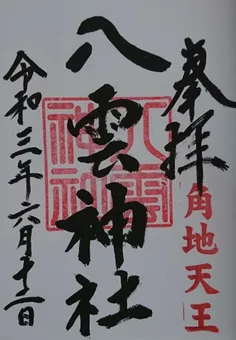 奉拝
角地天王
八雲神社
八雲
神社
令和三年六月十二日